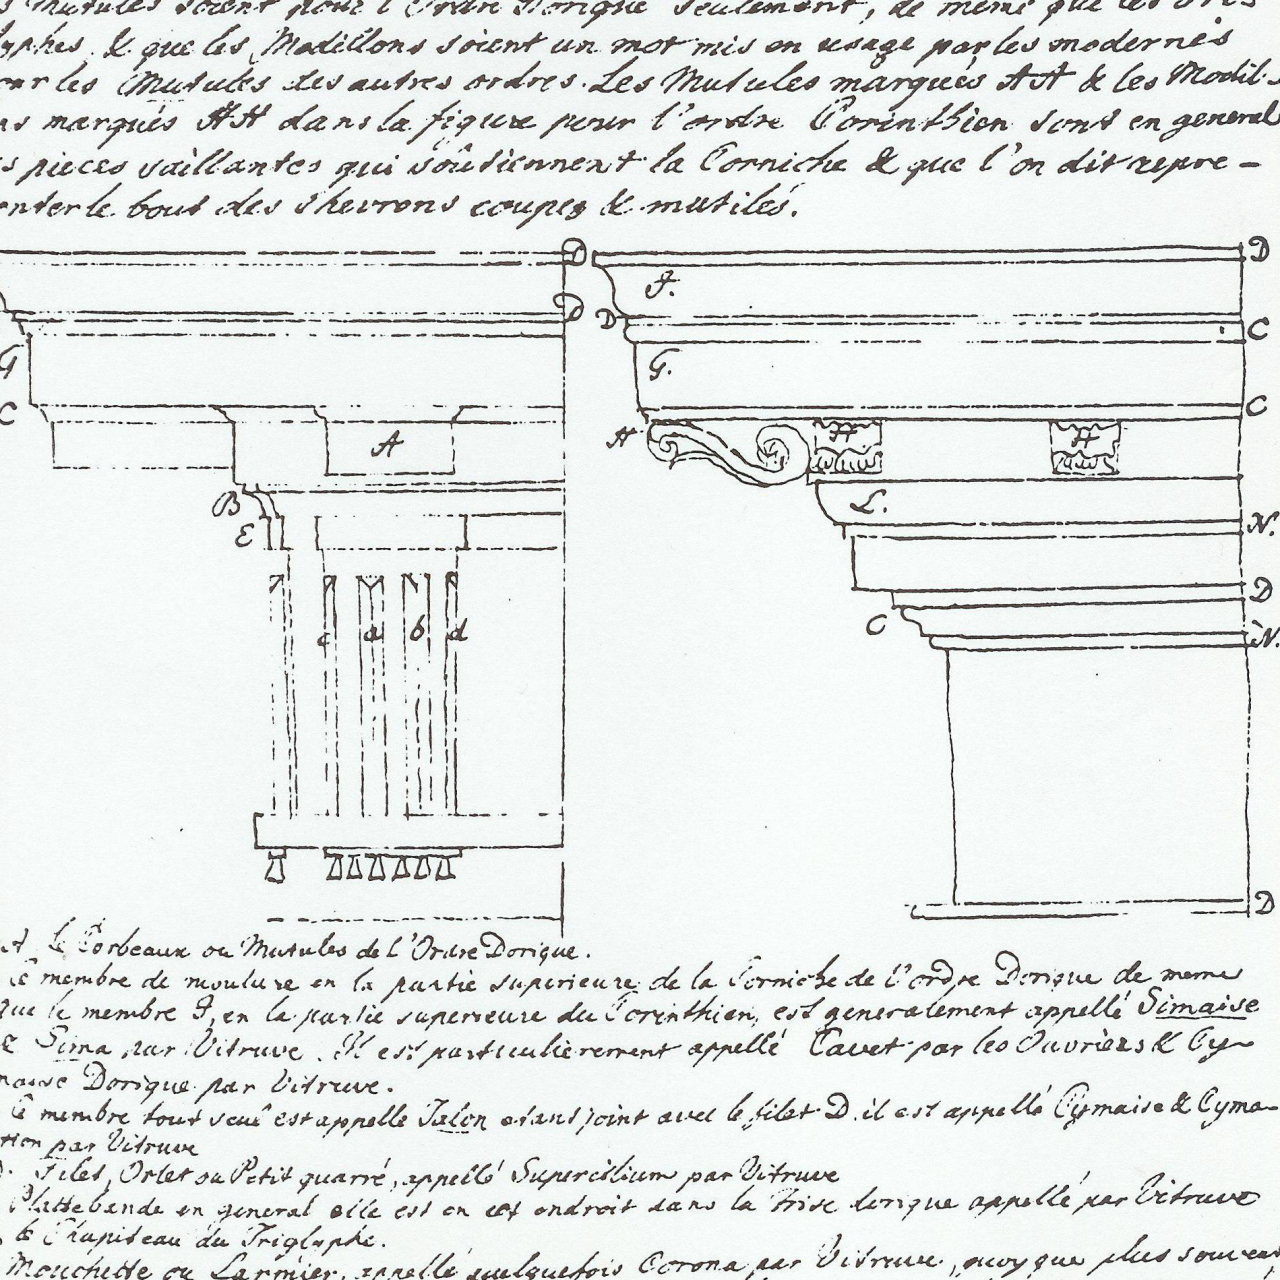 Mutules soient pour l'Ordre Dorique seulement, de même que les
& que les Modillons soient un mot mis en usage par les modernes
les Mutules des autres ordres. Les Mutules marqués AA & les Modil-
marqués HH dans la figure pour l'ordre Corinthien sont en general
pieces saillantes qui soûtiennent la Corniche & que l'on dit repre-
enter le bout des Chevrons coupez & mutilés.
D D
I.
D D C
G G.
C C
A H H H
B L.
E N.
D
C N.
c a b d
D
A le Corbeaux ou Mutules de l'Ordre Dorique.
Ce membre de moulure en la partie superieure de la Corniche de l'ordre Dorique de meme
que le membre I, en la partie superieure du Corinthien, est generalement appellé Simaise
& Sima par Vitruve. Il est particulièrement appellé Cavet par les Ouvriers & Cy-
maise Dorique par Vitruve.
Ce membre tout seul est appelle Talon estant joint avec le filet D. il est appellé Cymaise & Cyma-
tion par Vitruve
D. Filet, Orlet ou Petit quarré, appellé Supercilium par Vitruve
Plattebande en general elle est en cet endroit dans la Frise dorique appellé par Vitruve
le Chapiteau du Triglyphe.
Mouchette ou Larmier, appellé quelquefois Corona par Vitruve, quoy que plus souvent